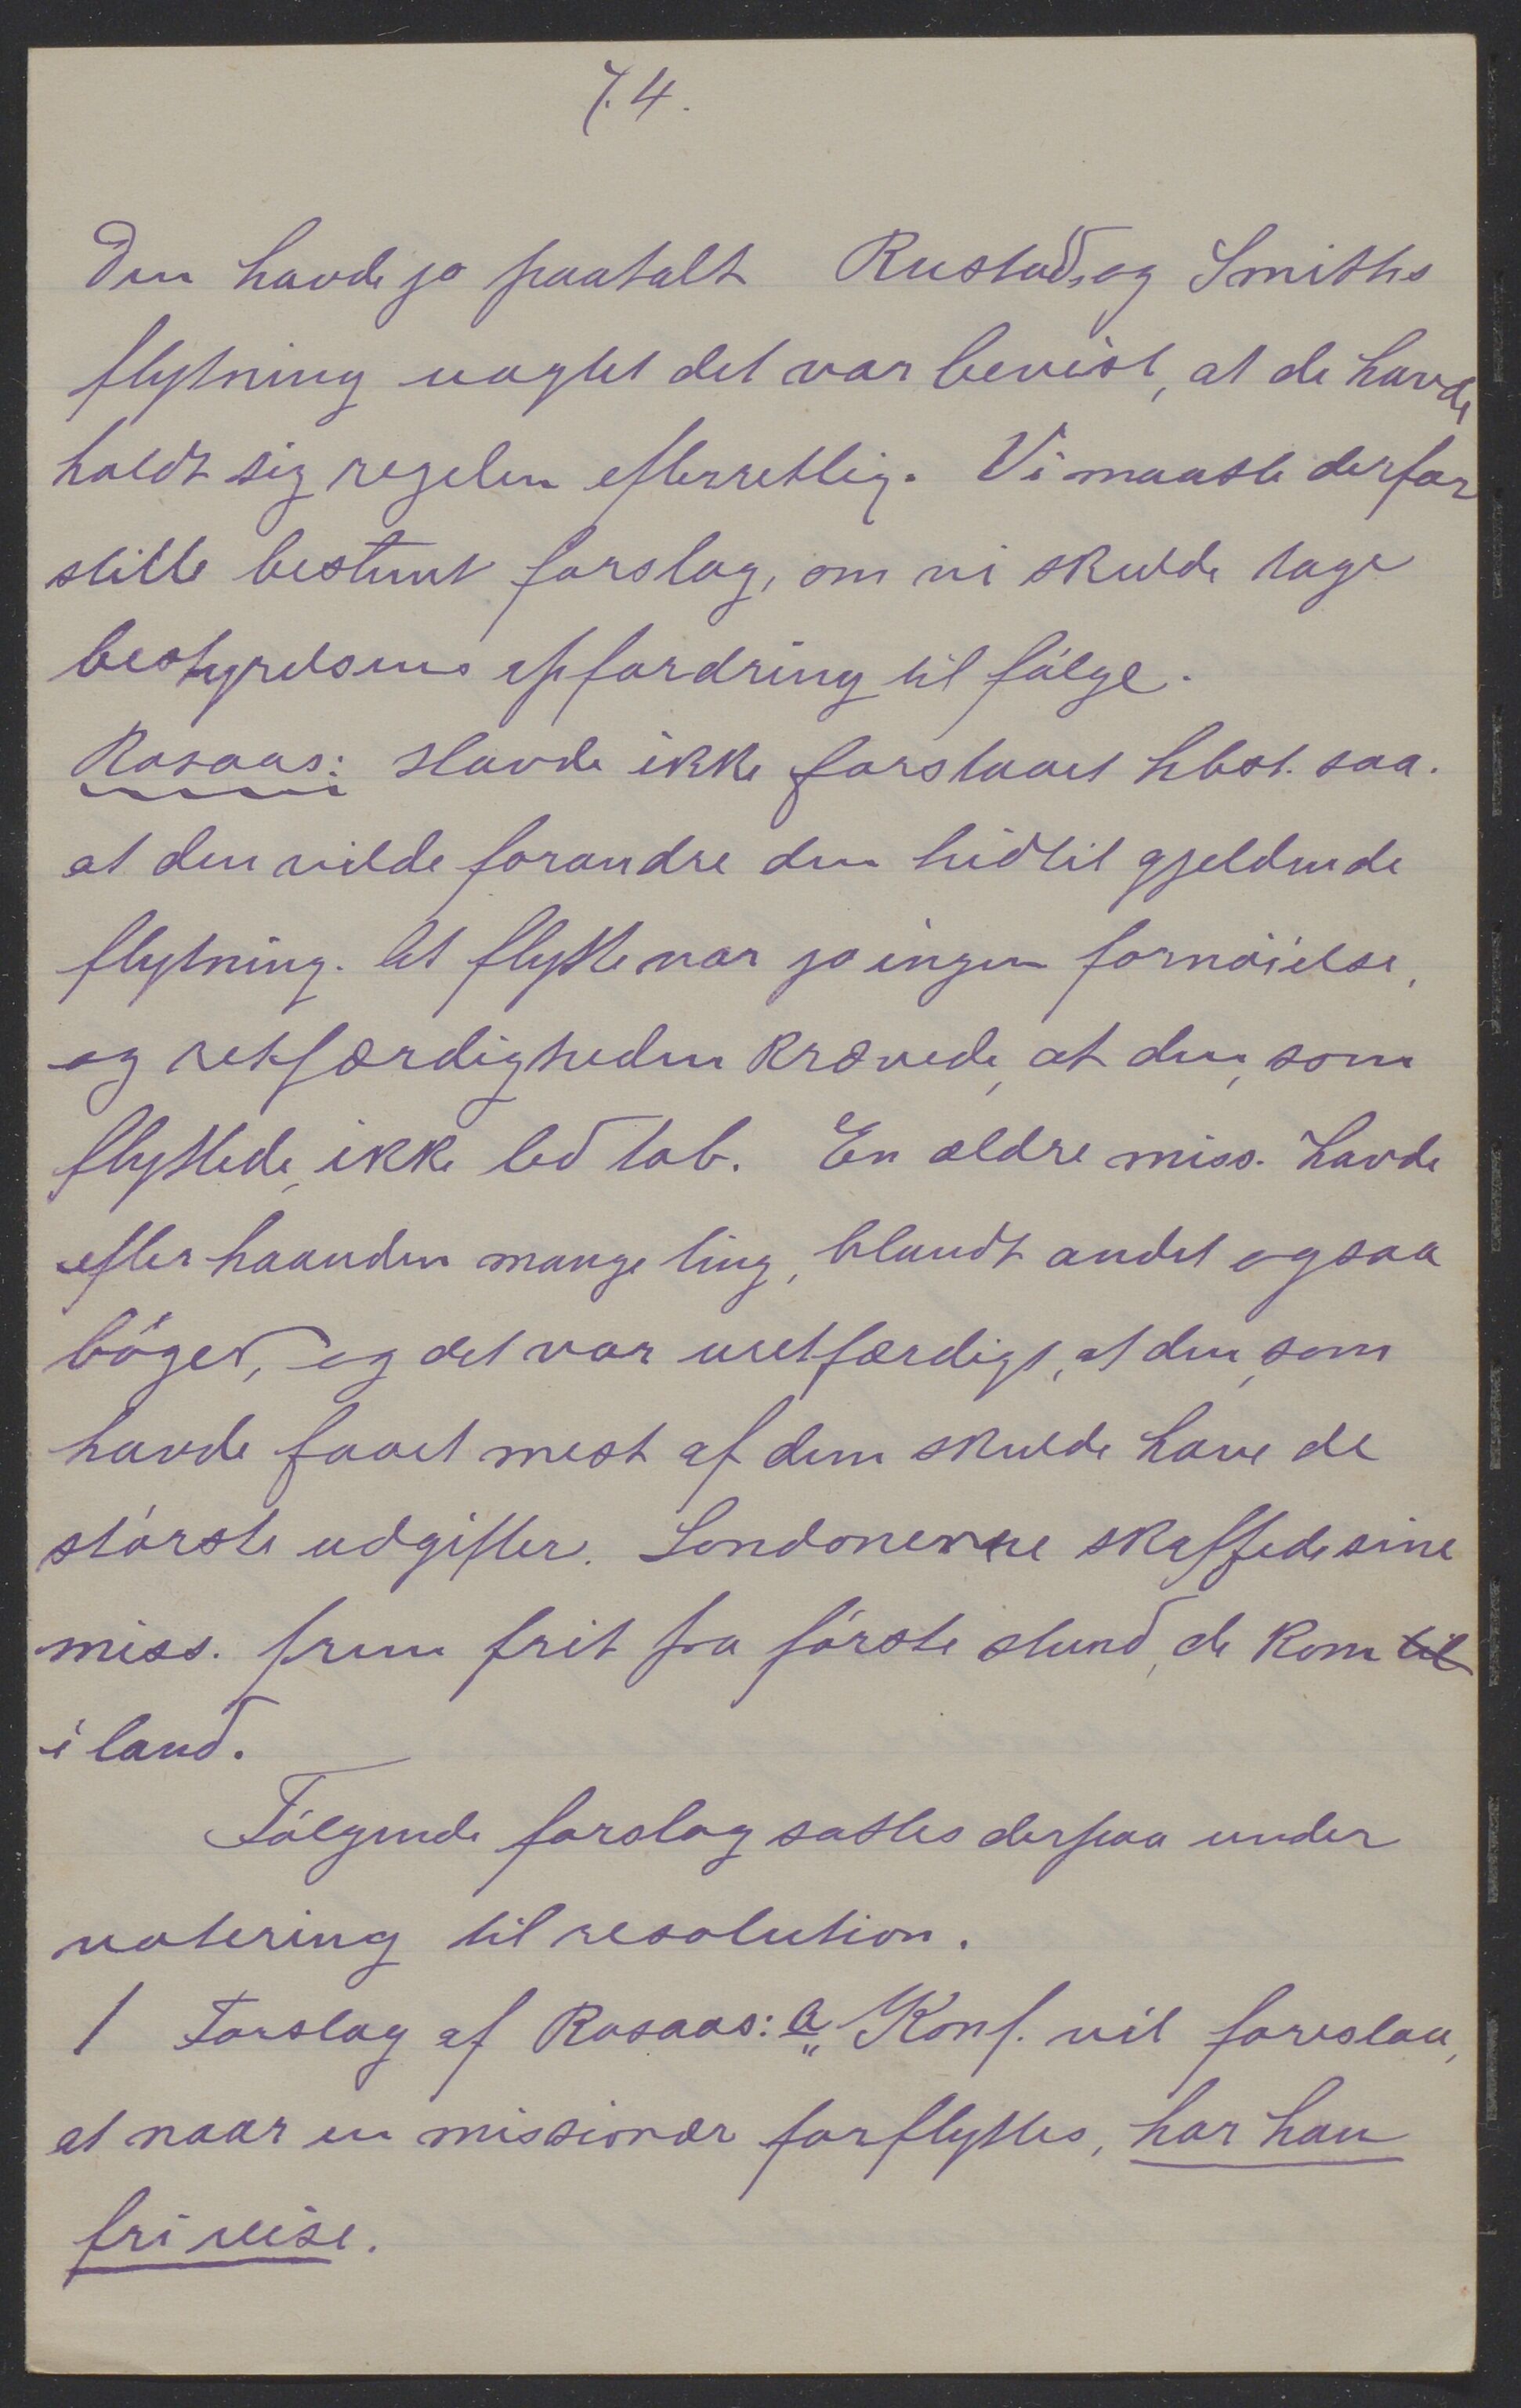 74.
Den havde jo paatalt Rustads og Smiths
flytning uagtet det var bevist, at de havde
holdt sig regelen efterrettelig. Vi maatte derfor
stille bestemt forslag, om vi skulde tage
bestyrelsens opfordring til følge.
Rosaas: Havde ikke forstaaet hbst. saa.
at den vilde forandre den hidtil gjeldende
flytning. At flytte var jo ingen fornøielse,
og retfærdigheden krævede, at den, som
flyttede, ikke led tab. En ældre miss. havde
efterhaanden mange ting, blandt andet ogsaa
bøger, og det var uretfærdigt, at den, som
havde faaet mest af dem skulde have de
største udgifter. Londonerne skaffede sine
miss. frem frit fra første stund, de kom til
i land.
Følgende forslag sattes derpaa under
votering til resolution.
1 Forslag af Rosaas: a „Konf. vil foreslaa,
at naar en missionær forflyttes, har han
fri reise.